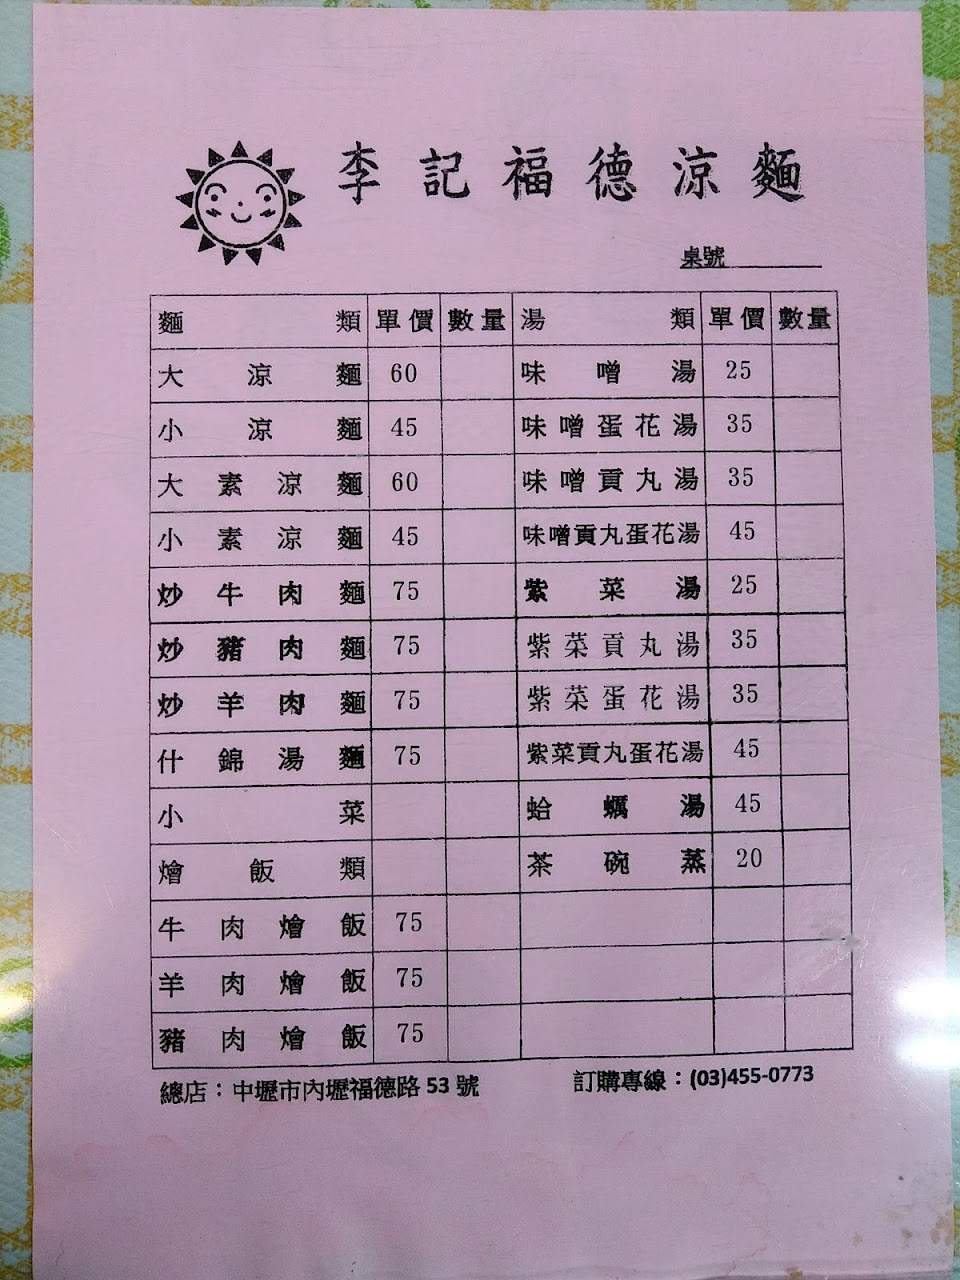 李記福德涼麵
桌號
麵類 單價 數量 湯類 單價 數量
大涼麵 60 味噌湯 25
小涼麵 45 味噌蛋花湯 35
大素涼麵 60 味噌貢丸湯 35
小素涼麵 45 味噌貢丸蛋花湯 45
炒牛肉麵 75 紫菜湯 25
炒豬肉麵 75 紫菜貢丸湯 35
炒羊肉麵 75 紫菜蛋花湯 35
什錦湯麵 75 紫菜貢丸蛋花湯 45
小菜 蛤蠣湯 45
燴飯類 茶碗蒸 20
牛肉燴飯 75
羊肉燴飯 75
豬肉燴飯 75
總店：中壢市內壢福德路 53 號 訂購專線：(03)455-0773